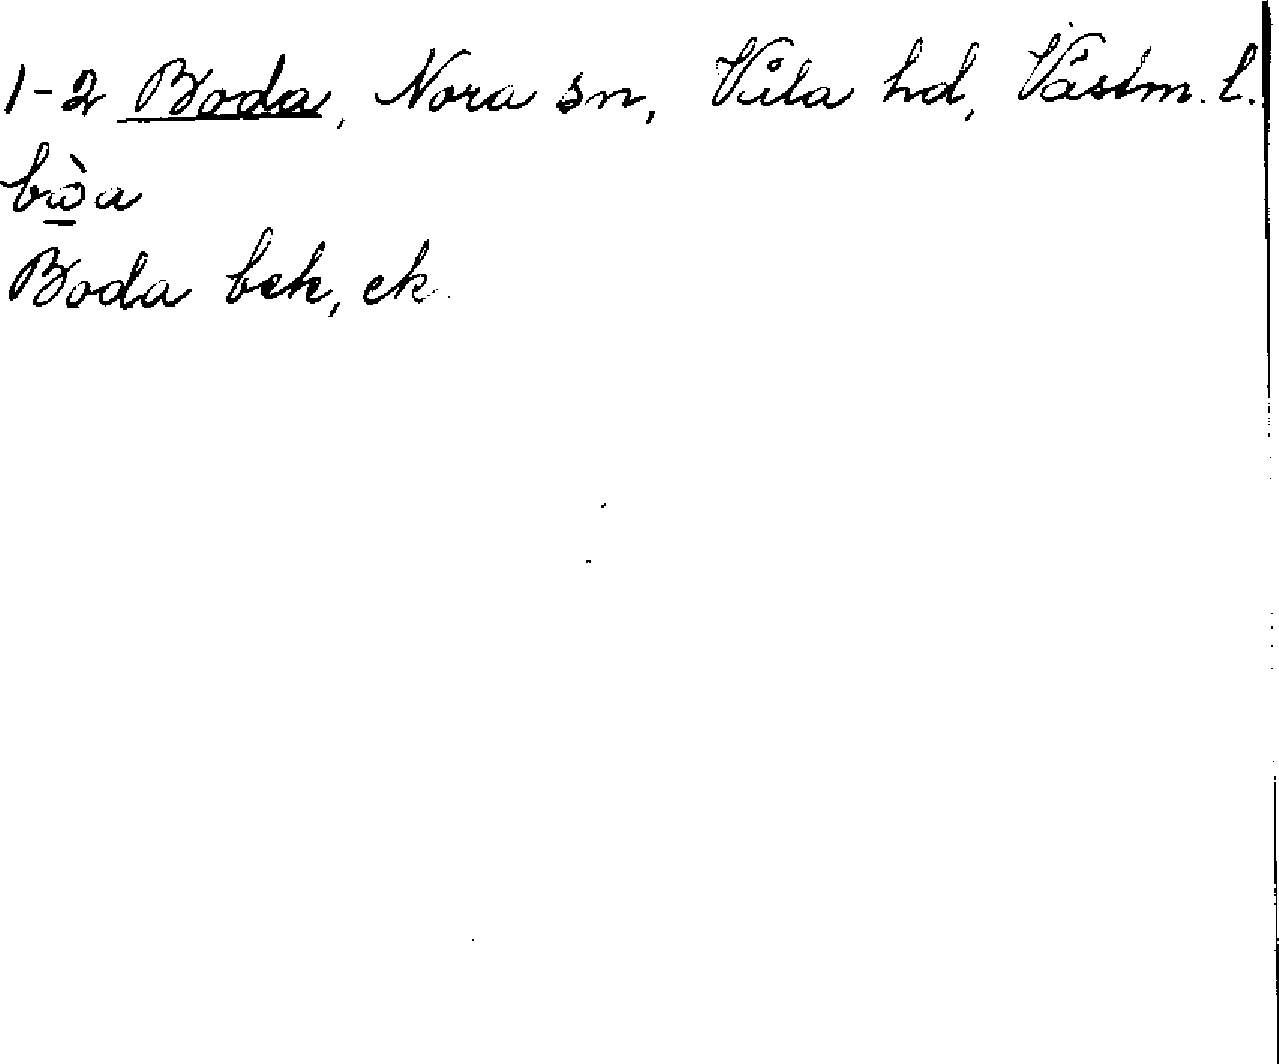 1-2 Boda, Nora sn, Våla hd, Västm. l.
bὼ̱a
Boda bek, ek.